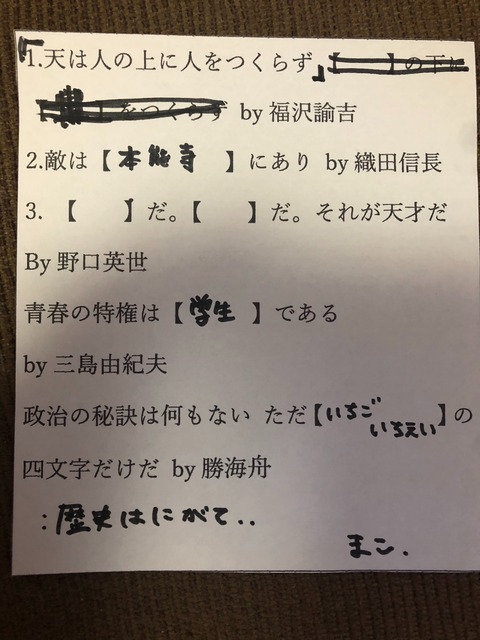 「1.天は人の上に人をつくらず」【　　】の下に
をつくらず by 福沢諭吉
2.敵は【本能寺】にあり by 織田信長
3.【　　】だ。【　　】だ。それが天才だ
By 野口英世
青春の特権は【学生】である
by 三島由紀夫
政治の秘訣は何もない ただ【いちご いちえい】の
四文字だけだ by 勝海舟
:歴史はにがて..
まこ.